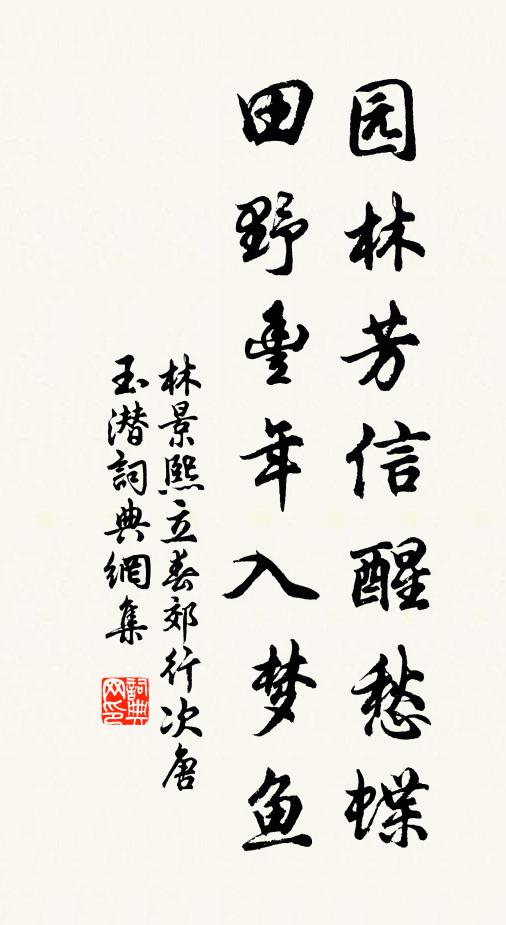 园林芳信醒愁蝶
田野豊年入梦鱼
林景熙立春郊行次唐
玉潜詞典網集
詞典网印